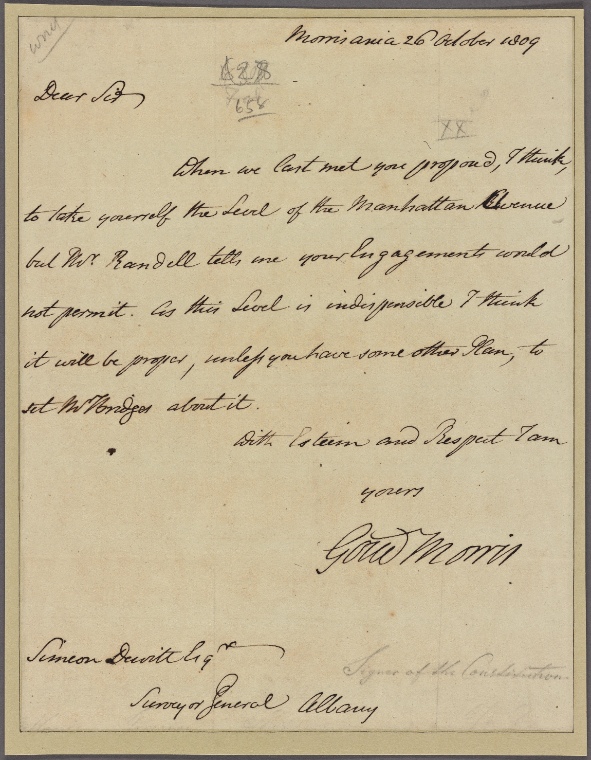 Morrisania 26 October 1809
658
Dear Sir
XX
When we last met you proposed, I think,
to take yourself the Level of the Manhattan Avenue
but Mr. Randell tells me your Engagements would
not permit. As this Level is indispensible I think
it will be proper, unless you have some other Plan, to
set Mr Bridges about it.
With Esteem and Respect I am
yours
Gouv Morris
Simeon Dewitt Esqr
Surveyor General Albany
Signer of the Constitution